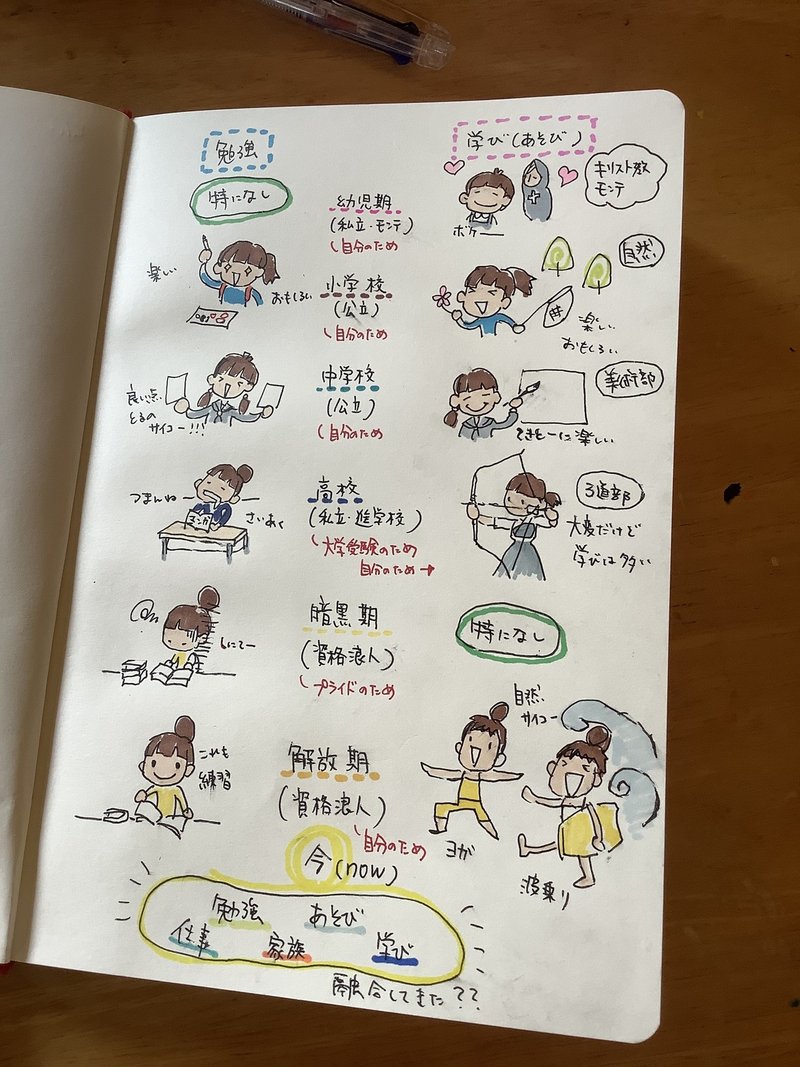 勉強
学び(あそび)
特になし
幼児期
(私立・モンテ)
自分のため
キリスト教
モンテ
ボケー
楽しい
おもしろい
小学校
(公立)
自分のため
自然
楽しい
おもしろい
良い点
とるの
サイコー!!!
中学校
(公立)
自分のため
美術部
てきとーに楽しい
つまんねー
マンガ
さいあく
高校
(私立・進学校)
大学受験のため
自分のため→
弓道部
大変だけど
学びは多い
しにてー
暗黒期
(資格浪人)
プライドのため
特になし
これも
練習
解放期
(資格浪人)
自分のため
自然
サイコー
ヨガ
波乗り
今(now)
勉強
あそび
仕事
家族
学び
融合してきた??